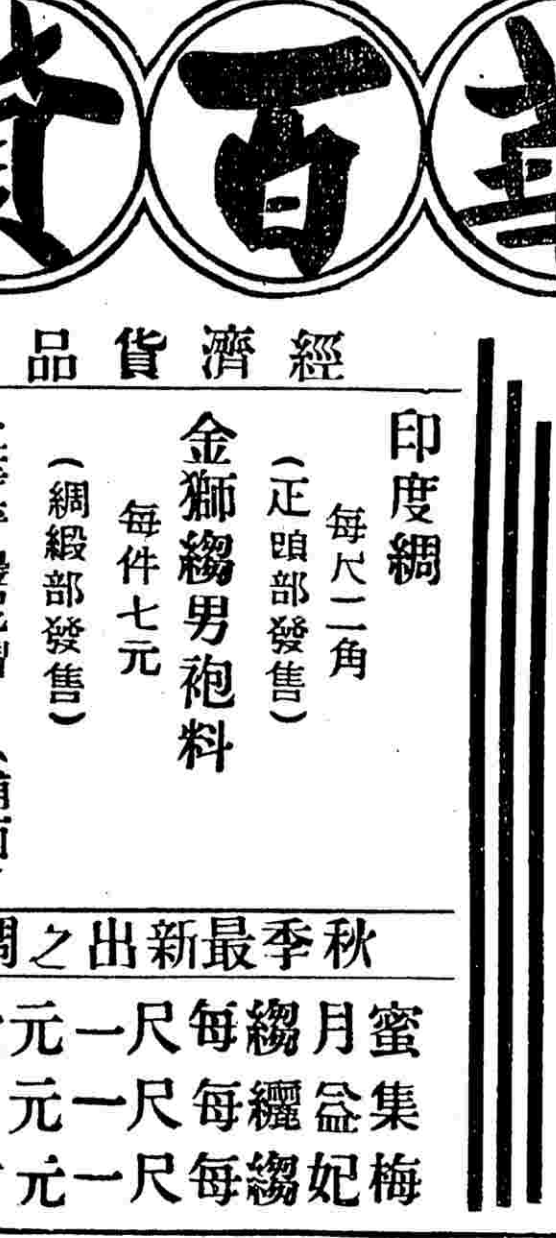 華百貨
經濟貨品
印度綢
每尺二角
(疋頭部發售)
金獅縐男袍料
每件七元
(綢緞部發售)
秋季最新出之綢
蜜月縐每尺一元
集益纚每尺一元
梅妃縐每尺一元